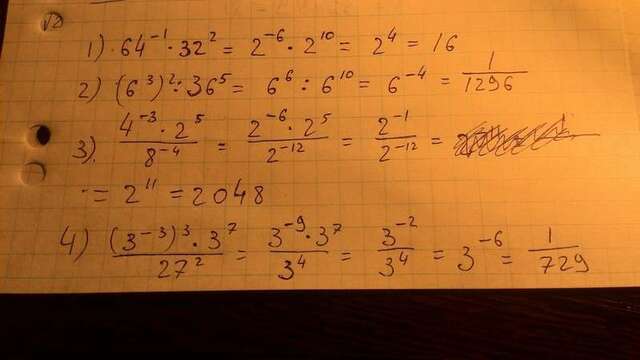 √2
1) 64⁻¹ · 32² = 2⁻⁶ · 2¹⁰ = 2⁴ = 16
2) (6³)² : 36⁵ = 6⁶ : 6¹⁰ = 6⁻⁴ = 1/1296
3) (4⁻³ · 2⁵)/(8⁻⁴) = (2⁻⁶ · 2⁵)/(2⁻¹²) = (2⁻¹)/(2⁻¹²) =
= 2¹¹ = 2048
4) ((3⁻³)³ · 3⁷)/(27²) = (3⁻⁹ · 3⁷)/(3⁴) = (3⁻²)/(3⁴) = 3⁻⁶ = 1/729